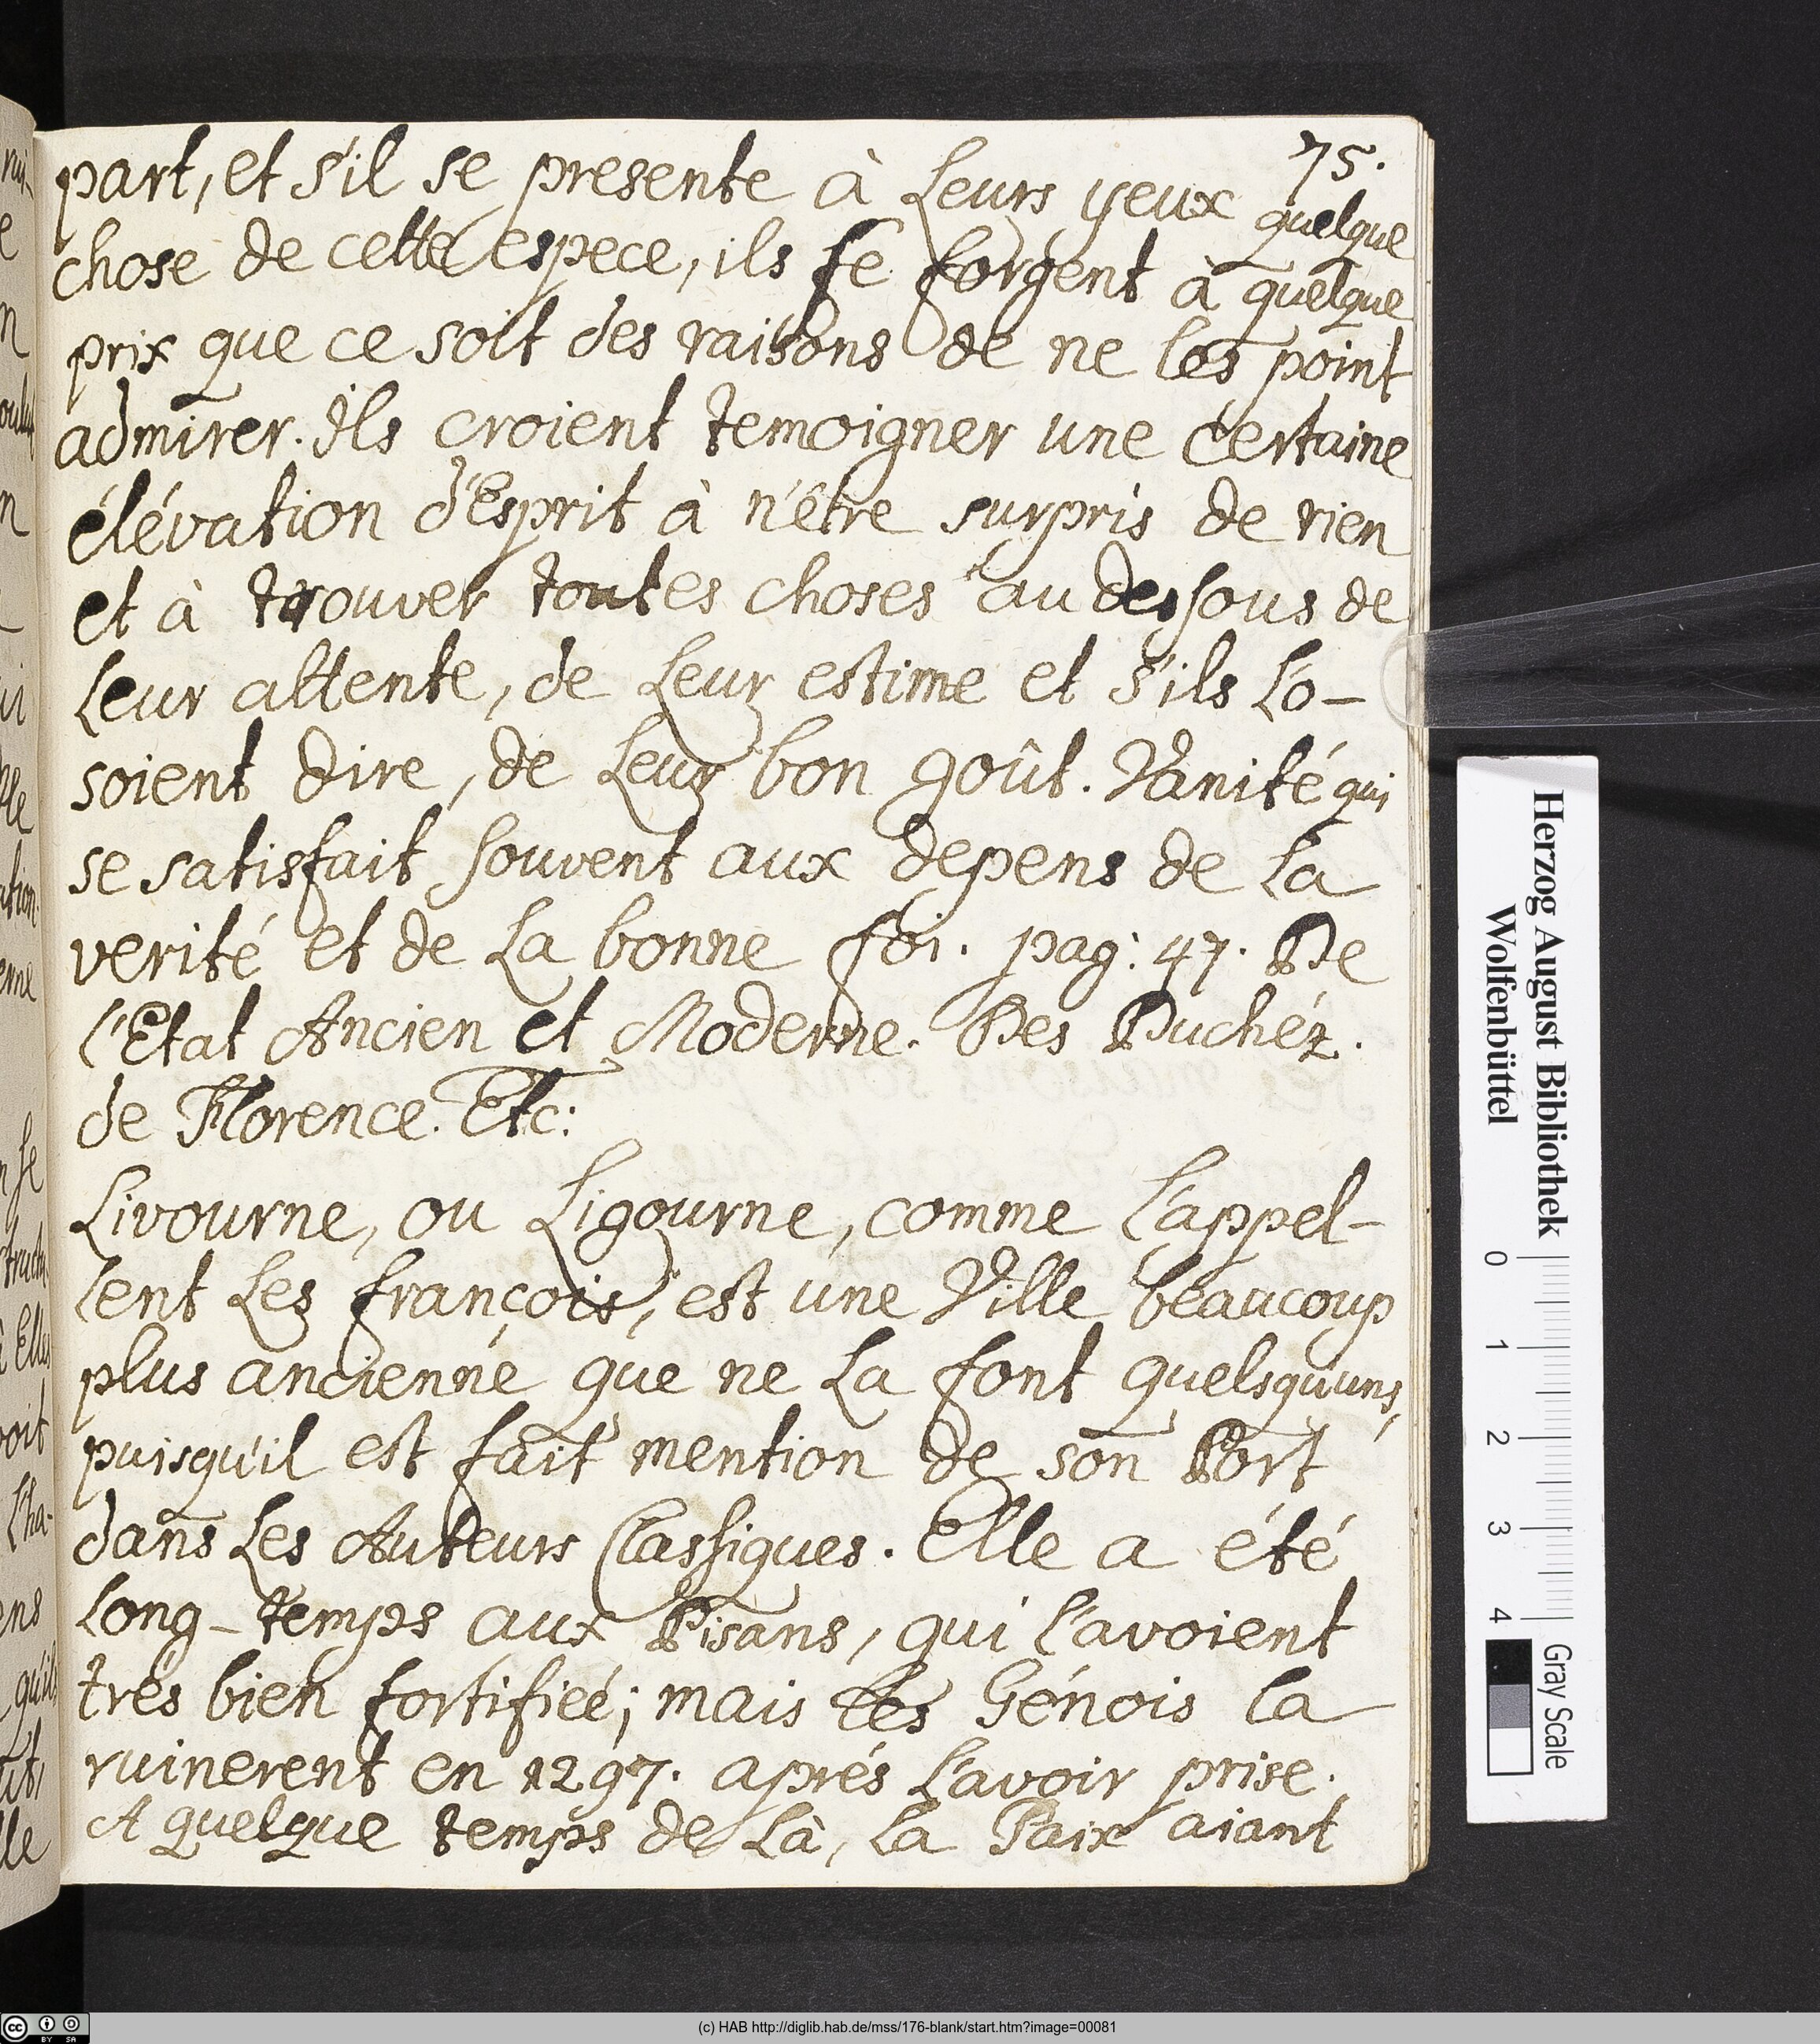 75.
part, et s'il se presente à Leurs yeux quelque
chose de cette espece, ils se forgent à quelque
prix que ce soit des raisons de ne les point
admirer. Ils croient temoigner une certaine
élévation d'Esprit à n'étre surpris de rien
et à trouver toutes choses au dessous de
Leur attente, de Leur estime et s'ils l'o-
soient dire, de Leur bon goût. Vanité qui
se satisfait souvent aux depens de la
verité et de La bonne foi. pag: 47. De
l'Etat Ancien et Moderne. Des Duchéz.
de Florence. Etc:
Livourne, ou Ligourne, comme l'appel-
lent Les françois, est une Ville beaucoup
plus ancienne que ne La font quelsqu'uns,
puisqu'il est fait mention de son Port
dans Les Auteurs Classiques. Elle a été
Long-temps aux Pisans, qui l'avoient
trés bien fortifieé; mais les Génois la
ruinerent en 1297. aprés L'avoir prise.
A quelque temps de Là, La Paix aiant
Herzog August Bibliothek
Wolfenbüttel
0 1 2 3 4
Gray Scale
(c) HAB http://diglib.hab.de/mss/176-blank/start.htm?image=00081